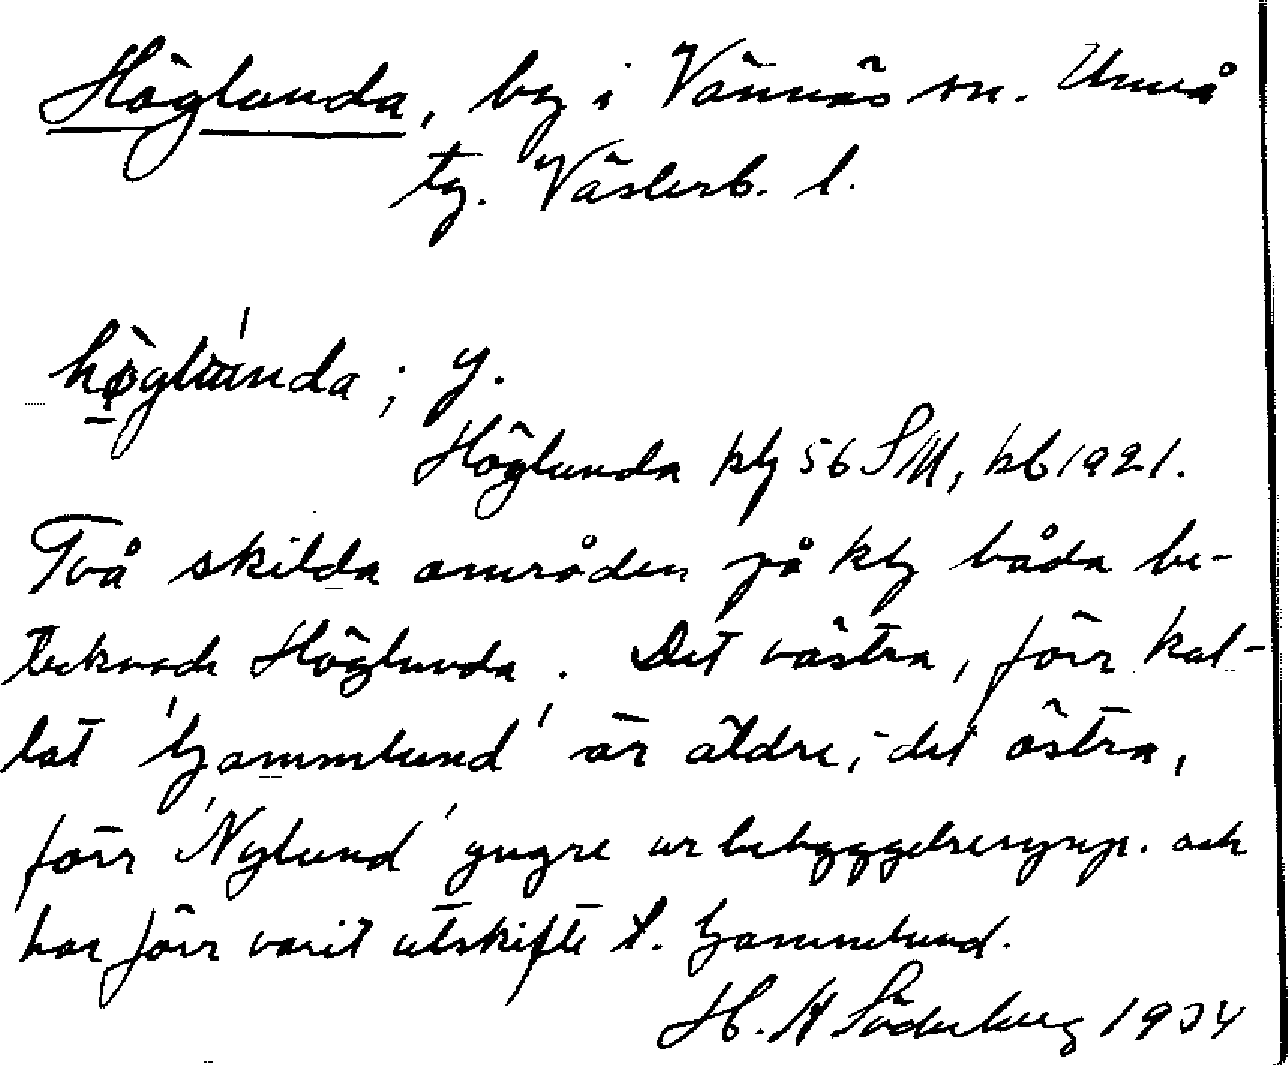 Höglunda, by i Vännäs sn. Umeå
tg. Västerb. l.
höglúnda; y.
Höglunda kbl 56 SM, kb 1921.
Två skilda områden på kbl båda be-
tecknade Höglunda. Det västra, förr kal-
lat 'Gammlund' är äldre; det östra,
förr 'Nylund' yngre ur bebyggelsesynp. och
har förr varit utskifte t. Gammlund.
H. H Söderberg 1934